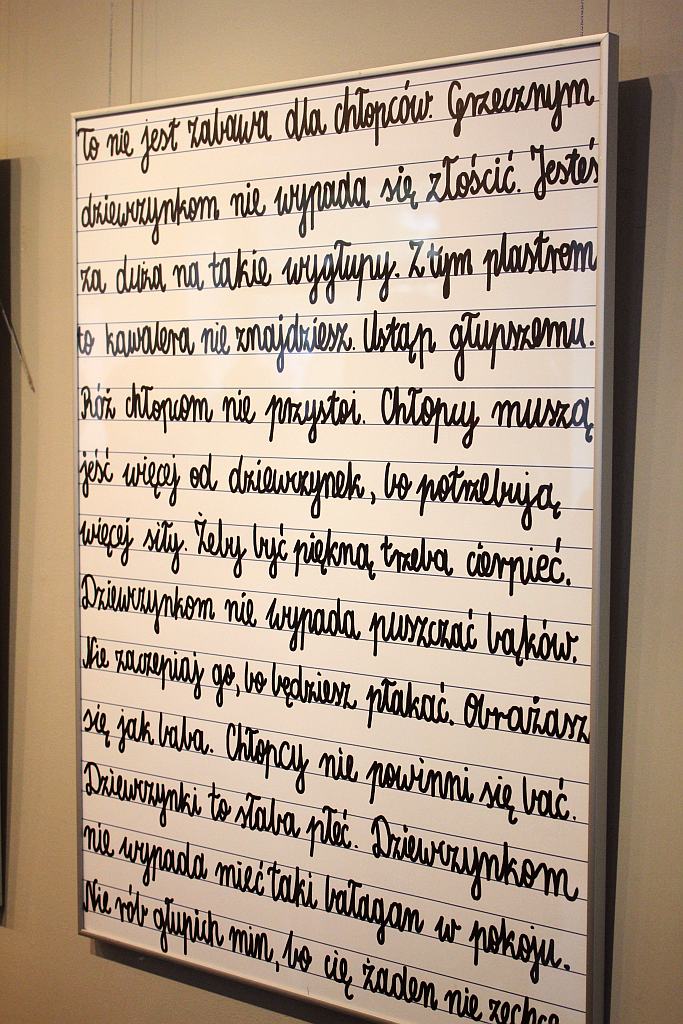 To nie jest zabawa dla chłopców. Grzecznym
dziewczynkom nie wypada się złościć. Jesteś
za duża na takie wygłupy. Z tym plastrem
to kawalera nie znajdziesz. Ustąp głupszemu.
Róż chłopcom nie przystoi. Chłopcy muszą
jeść więcej od dziewczynek, bo potrzebują
więcej siły. Żeby być piękną trzeba cierpieć.
Dziewczynkom nie wypada puszczać bąków.
Nie zaczepiaj go, bo będziesz płakać. Obrażasz
się jak baba. Chłopcy nie powinni się bać.
Dziewczynki to słaba płeć. Dziewczynkom
nie wypada mieć taki bałagan w pokoju.
Nie rób głupich min, bo cię żaden nie zechce